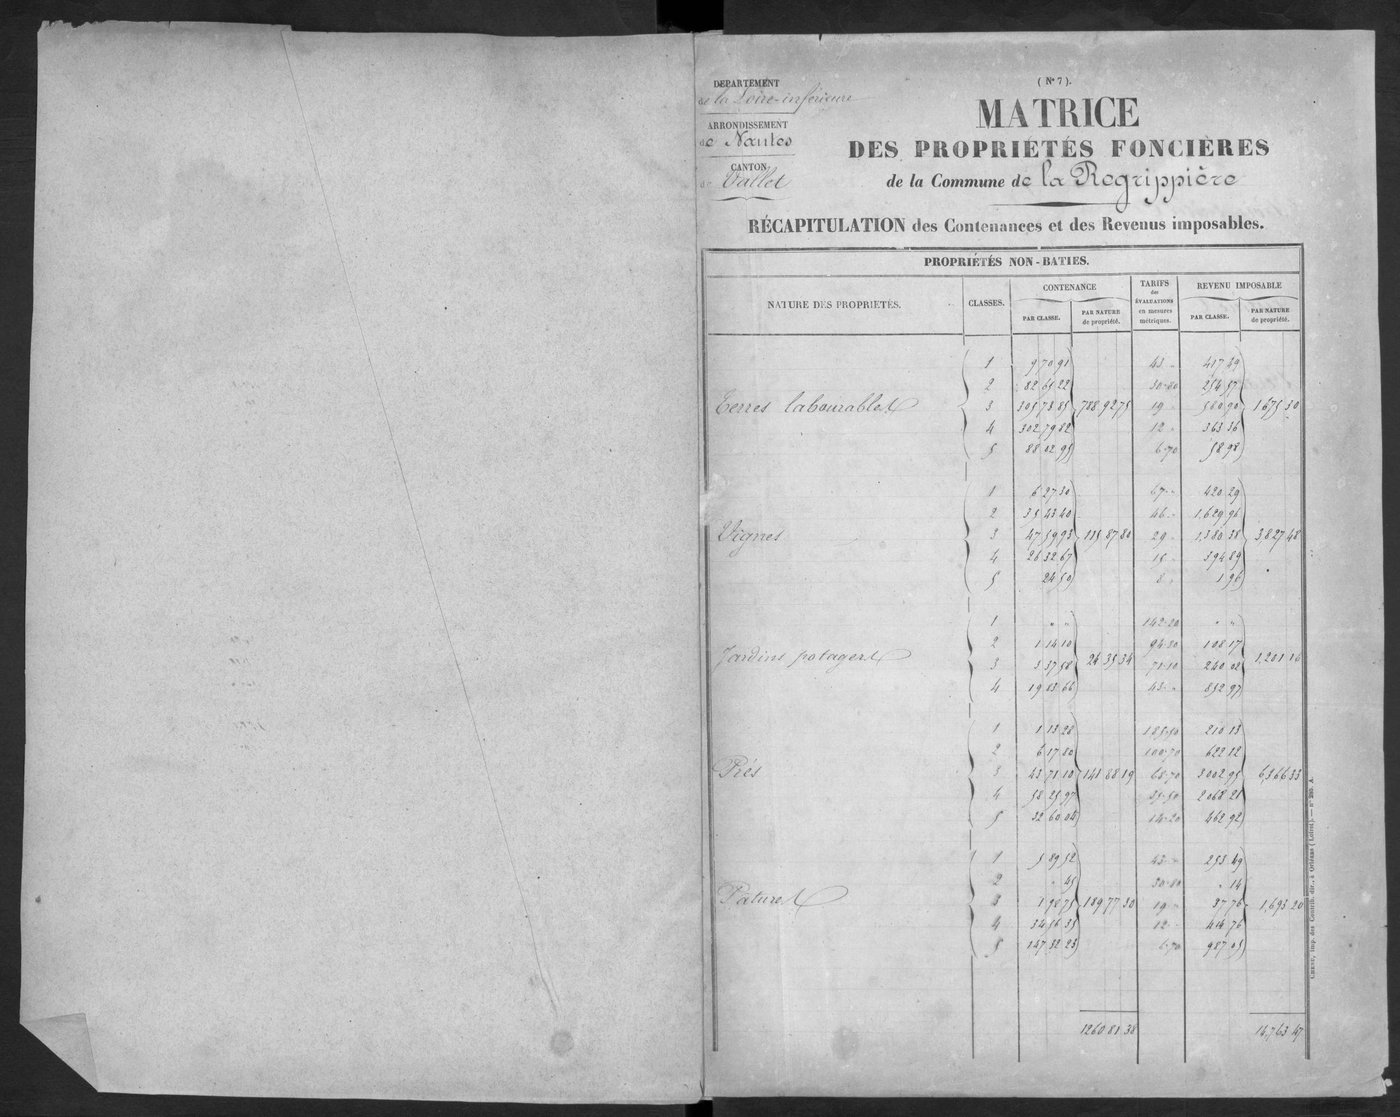 DÉPARTEMENT
de la Loire-inférieure
ARRONDISSEMENT
de Nantes
CANTON
de Vallet
( Nº 7 ).
MATRICE
DES PROPRIÉTÉS FONCIÈRES
de la Commune de la Regrippière
RÉCAPITULATION des Contenances et des Revenus imposables.
PROPRIÉTÉS NON-BATIES.
NATURE DES PROPRIÉTÉS. CLASSES. CONTENANCE TARIFS des ÉVALUATIONS en mesures métriques. REVENU IMPOSABLE
PAR CLASSE. PAR NATURE de propriété. PAR CLASSE. PAR NATURE de propriété.
1 9 70 91 43 " 417 49
2 82 65 22 30-80 254 57
Terres labourables 3 305 73 85 788 92 75 19 " 580 90 1675 30
4 302 79 82 12 " 363 36
5 88 02 95 6-70 58 98
1 6 27 30 67 " 420 29
2 35 43 40 46 " 1,629 96
Vignes 3 47 59 93 115 87 80 29 " 1,380 38 3,827 48
4 26 32 67 15 " 394 89
5 24 50 8 " 1 96
1 " " 142-20 " "
2 1 14 10 94-80 108 17
Jardins potagers 3 3 37 58 24 35 34 71-10 240 02 1,201 16
4 19 83 66 43 " 852 97
1 1 13 28 185-50 210 13
2 6 17 80 100-70 622 12
Prés 3 43 71 10 141 88 19 68-70 3002 95 6,366 33
4 58 25 97 35-50 2068 21
5 32 60 04 14-20 462 92
1 5 89 52 43 " 253 49
2 " 45 30-80 " 14
Patures 3 1 98 75 189 77 30 19 " 37 76 1,693 20
4 34 56 35 12 " 414 76
5 147 32 23 6-70 987 05
1260 81 38 14,763 47
CHENU, imp. des Contrib. dir., à Orléans (Loiret). — nº 295. A.